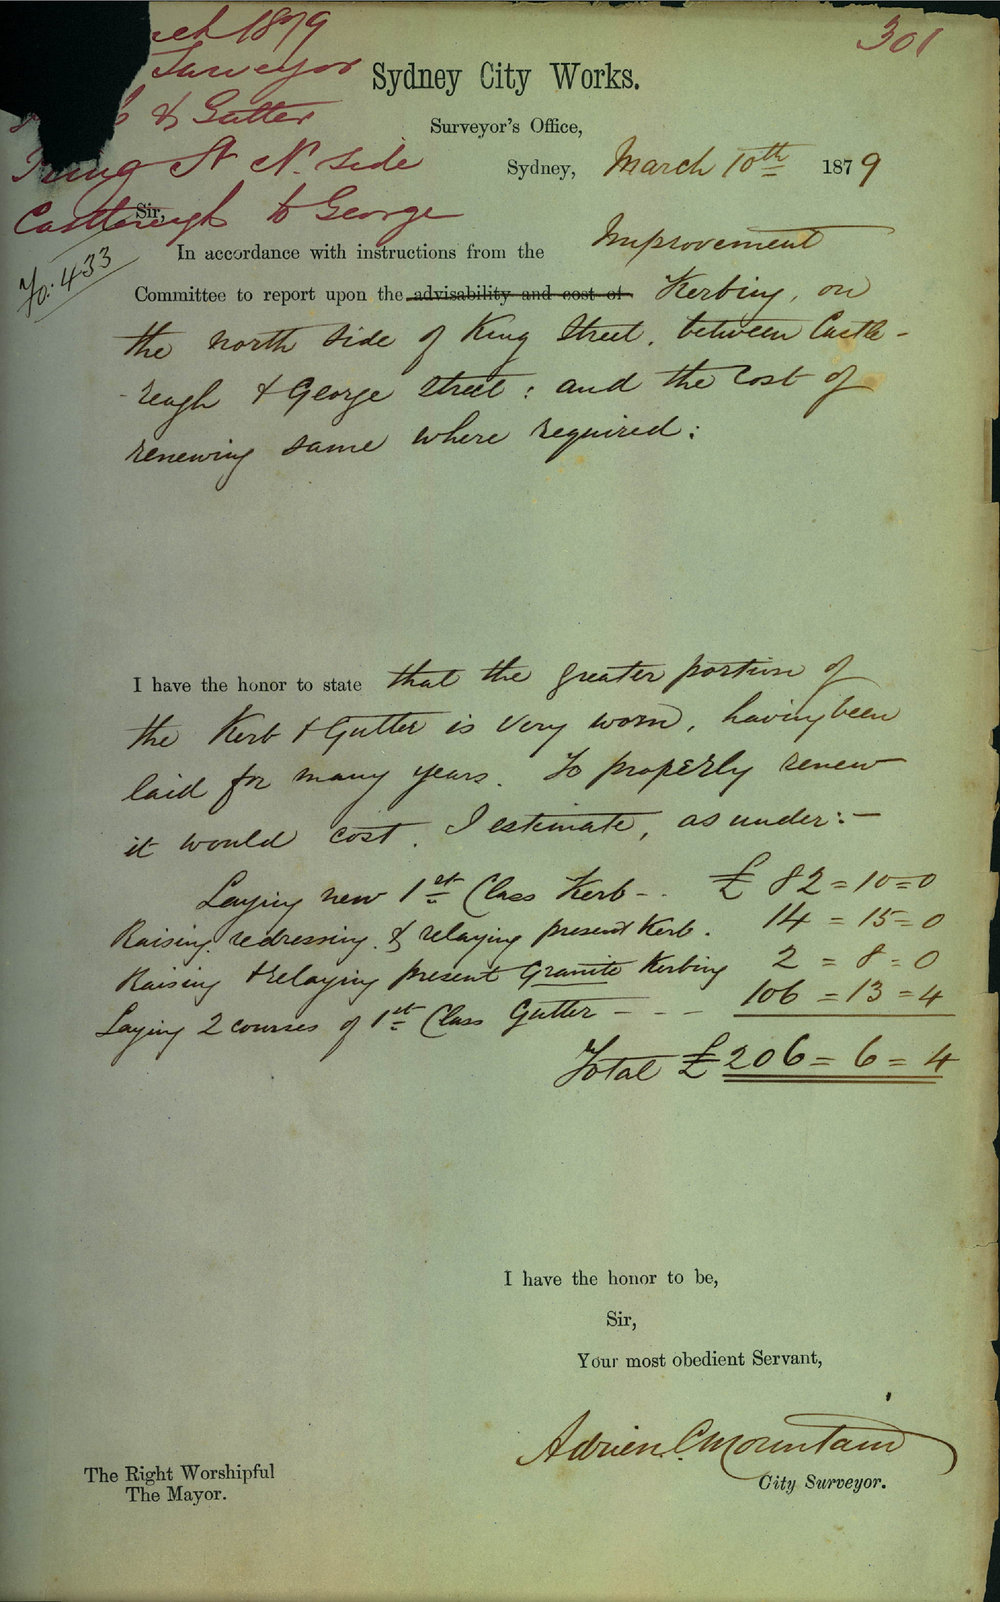 301
1879
Surveyor
& Gutter
King St N. side
Castlereagh to George
Fo: 433
Sydney City Works.
Surveyor's Office,
Sydney, March 10th 1879
Sir,
In accordance with instructions from the Improvement
Committee to report upon the advisability and cost of Kerbing, on
the north side of King Street, between Castle-
-reagh & George Street: and the cost of
renewing same where required:
I have the honor to state that the greater portion of
the Kerb & Gutter is very worn, having been
laid for many years. To properly renew
it would cost, I estimate, as under:—
Laying new 1st Class Kerb - . £ 82 = 10 = 0
Raising, redressing, & relaying present Kerb. 14 = 15 = 0
Raising & relaying present Granite Kerbing 2 = 8 = 0
Laying 2 courses of 1st Class Gutter - - - 106 = 13 = 4
Total £ 206 = 6 = 4
I have the honor to be,
Sir,
Your most obedient Servant,
Adrien C. Mountain
City Surveyor.
The Right Worshipful
The Mayor.